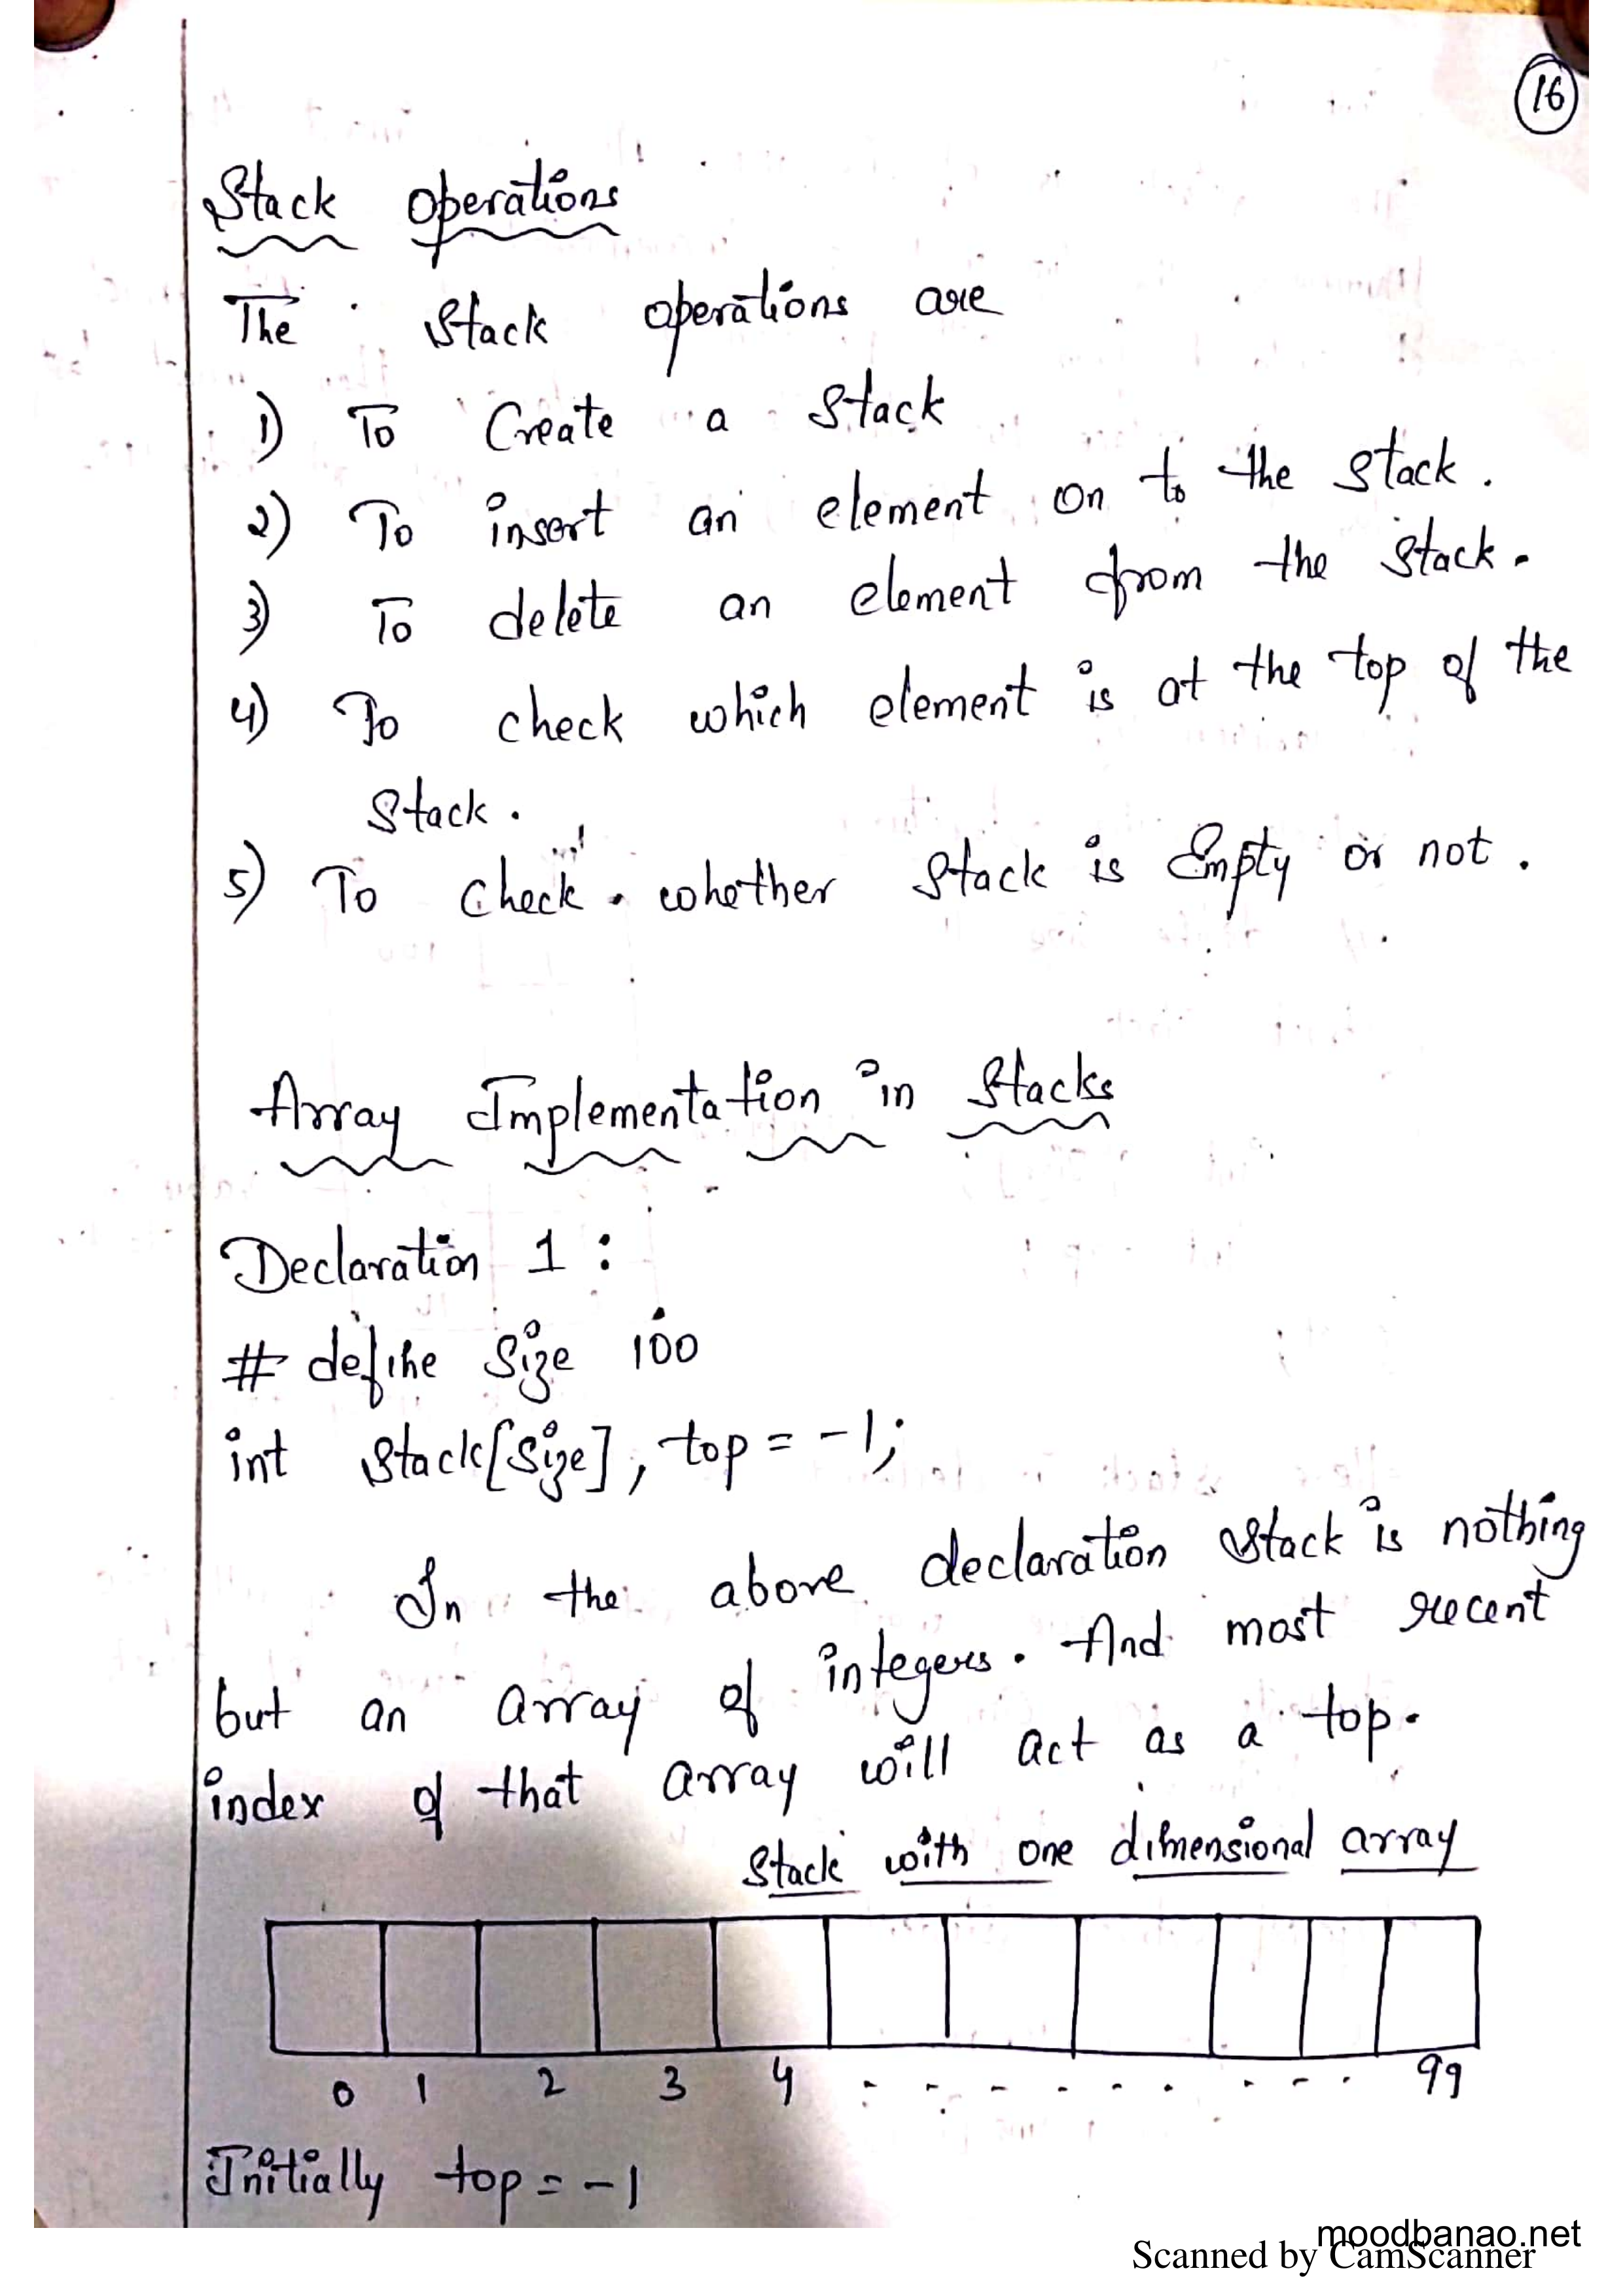 16
Stack operations
The Stack operations are
1) To Create a Stack
2) To insert an element on to the Stack.
3) To delete an element from the Stack.
4) To check which element is at the top of the
Stack.
5) To check whether Stack is Empty or not.
Array Implementation in Stacks
Declaration 1 :
# define Size 100
int Stack[Size], top = -1;
In the above declaration Stack is nothing
but an array of integers. And most recent
index of that array will act as a top.
Stack with one dimensional array
0 1 2 3 4 - - - - - - - - - 99
Initially top = -1
moodbanao.net
Scanned by CamScanner